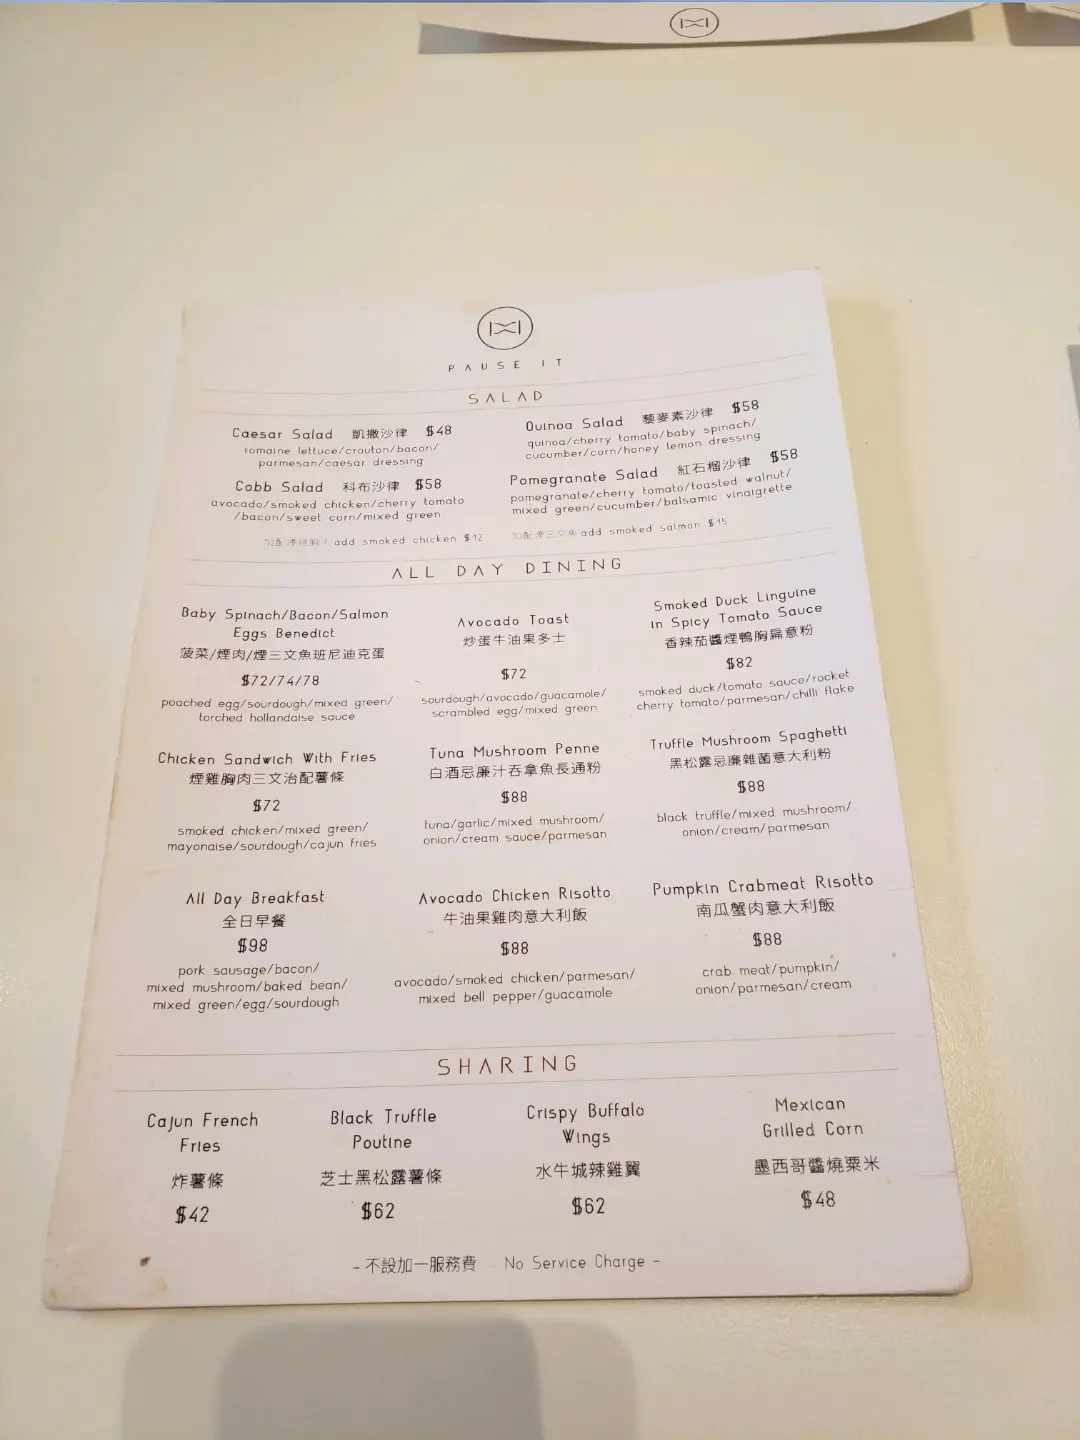 PAUSE IT
SALAD
Caesar Salad 凱撒沙律 $48
romaine lettuce/crouton/bacon/
parmesan/caesar dressing
Quinoa Salad 藜麥素沙律 $58
quinoa/cherry tomato/baby spinach/
cucumber/corn/honey lemon dressing
Cobb Salad 科布沙律 $58
avocado/smoked chicken/cherry tomato
/bacon/sweet corn/mixed green
Pomegranate Salad 紅石榴沙律 $58
pomegranate/cherry tomato/toasted walnut/
mixed green/cucumber/balsamic vinaigrette
add smoked chicken $12
加配煙三文魚 add smoked salmon $15
ALL DAY DINING
Baby Spinach/Bacon/Salmon
Eggs Benedict
菠菜/煙肉/煙三文魚班尼迪克蛋
$72/74/78
poached egg/sourdough/mixed green/
torched hollandaise sauce
Avocado Toast
炒蛋牛油果多士
$72
sourdough/avocado/guacamole/
scrambled egg/mixed green
Smoked Duck Linguine
in Spicy Tomato Sauce
香辣茄醬煙鴨胸扁意粉
$82
smoked duck/tomato sauce/rocket
cherry tomato/parmesan/chilli flake
Chicken Sandwich With Fries
煙雞胸肉三文治配薯條
$72
smoked chicken/mixed green/
mayonaise/sourdough/cajun fries
Tuna Mushroom Penne
白酒忌廉汁吞拿魚長通粉
$88
tuna/garlic/mixed mushroom/
onion/cream sauce/parmesan
Truffle Mushroom Spaghetti
黑松露忌廉雜菌意大利粉
$88
black truffle/mixed mushroom/
onion/cream/parmesan
All Day Breakfast
全日早餐
$98
pork sausage/bacon/
mixed mushroom/baked bean/
mixed green/egg/sourdough
Avocado Chicken Risotto
牛油果雞肉意大利飯
$88
avocado/smoked chicken/parmesan/
mixed bell pepper/guacamole
Pumpkin Crabmeat Risotto
南瓜蟹肉意大利飯
$88
crab meat/pumpkin/
onion/parmesan/cream
SHARING
Cajun French
Fries
炸薯條
$42
Black Truffle
Poutine
芝士黑松露薯條
$62
Crispy Buffalo
Wings
水牛城辣雞翼
$62
Mexican
Grilled Corn
墨西哥醬燒粟米
$48
- 不設加一服務費 No Service Charge -